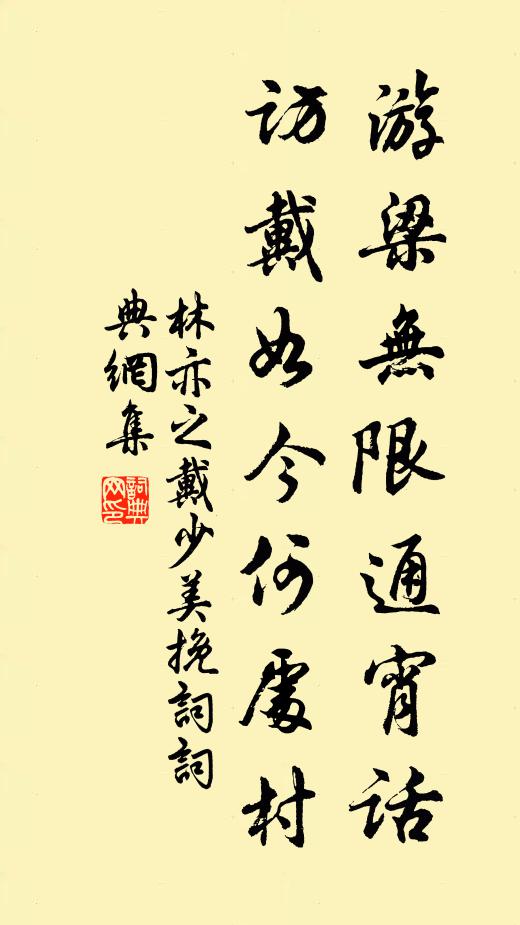 游梁無限通宵話
訪戴如今何處村
林亦之戴少美挽詞詞
典網集
詞典网印